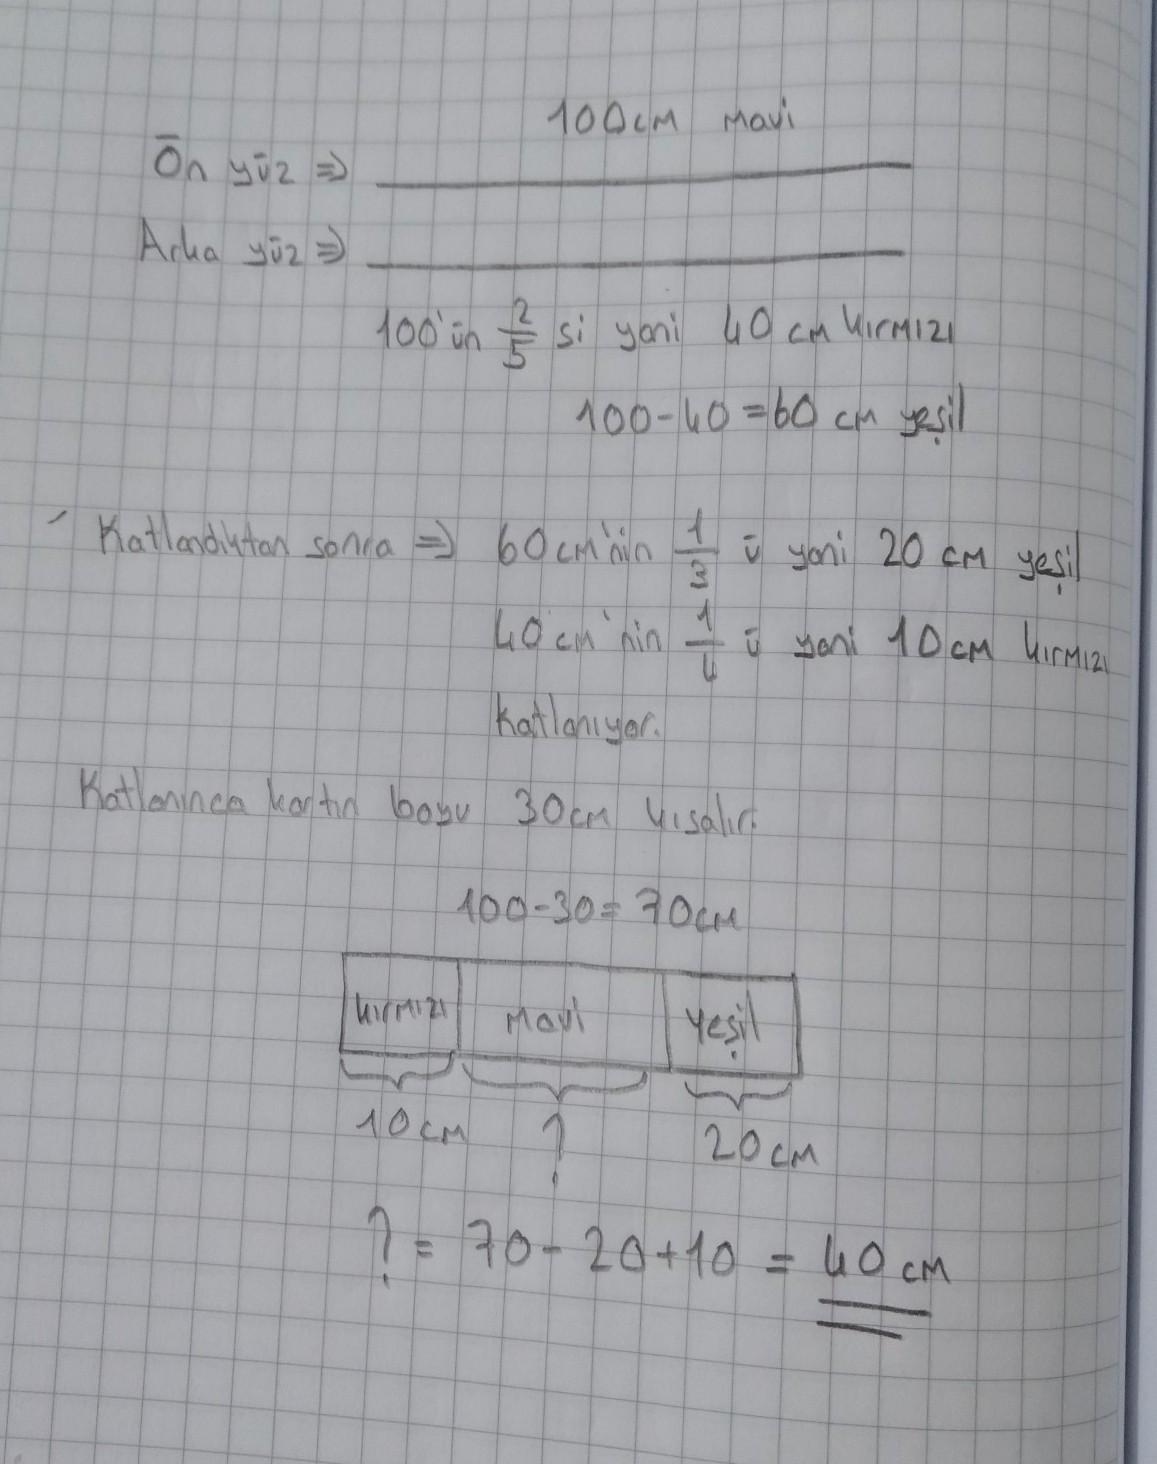 100cm mavi
Ön yüz ⇒
Arka yüz ⇒
100'ün 2/5 si yani 40 cm kırmızı
100-40=60 cm yeşil
Katlandıktan sonra ⇒ 60cm'nin 1/3 ü yani 20 cm yeşil
40cm'nin 1/4 ü yani 10cm kırmızı
katlanıyor.
Katlanınca kartın boyu 30cm kısalır.
100-30=70cm
kırmızı mavi yeşil
10cm ? 20cm
? = 70-20+10 = 40cm